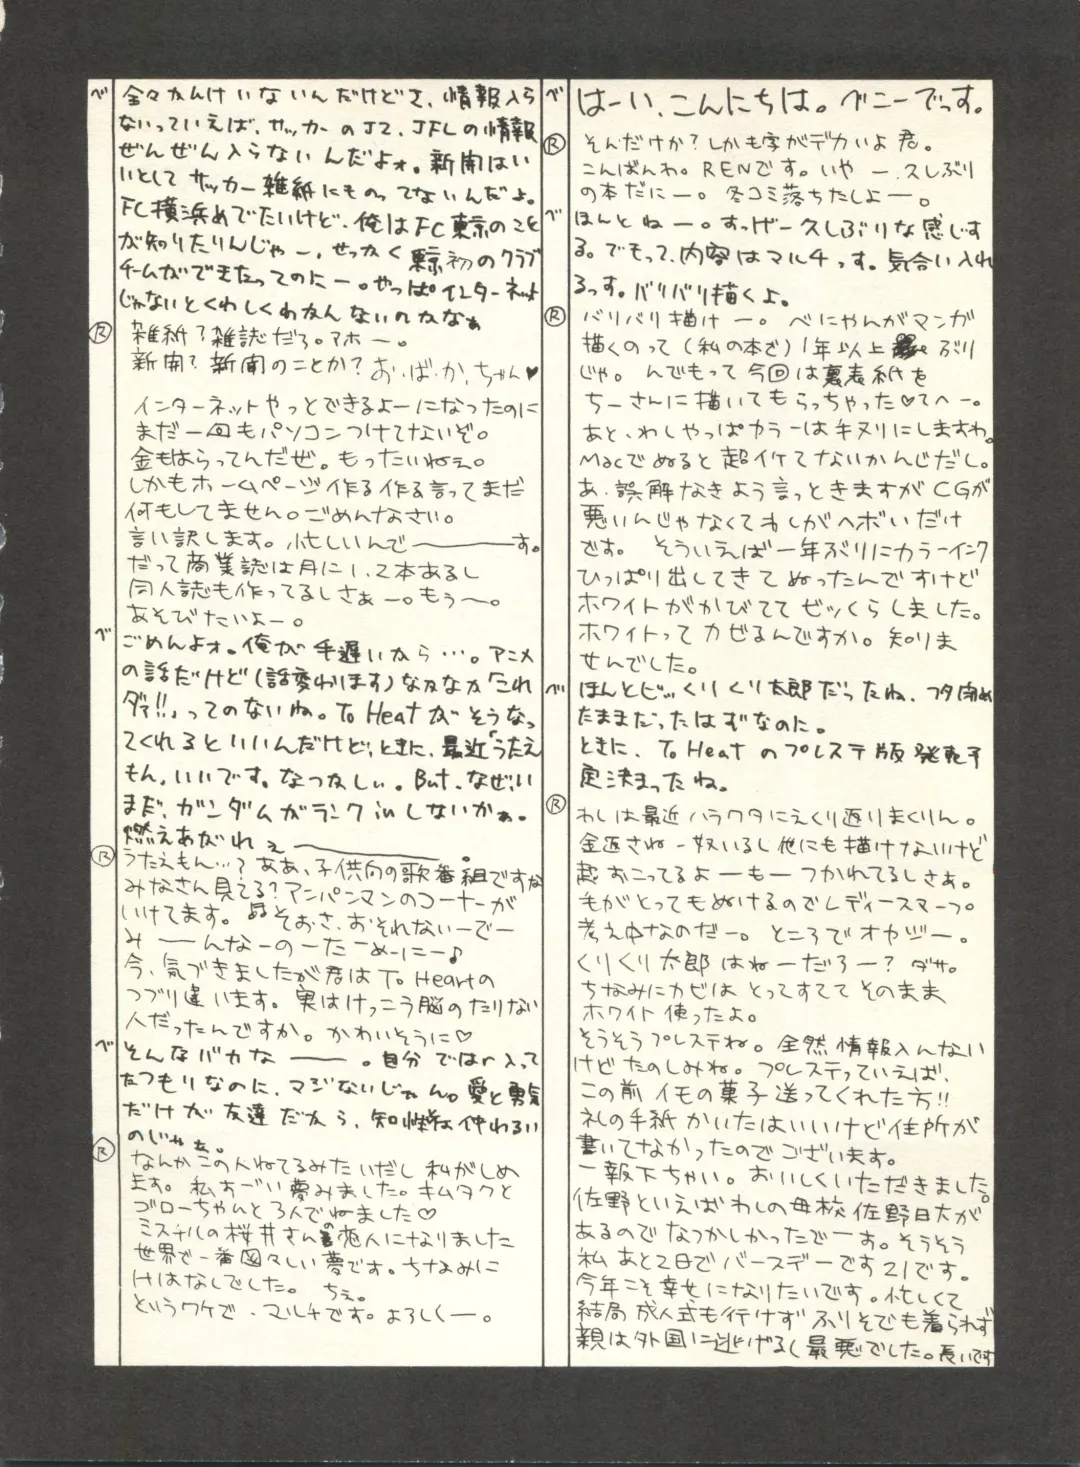 べ はーい、こんにちは。べニーでっす。
Ⓡ そんだけか？しかも字がデカいよ君。
こんばんわ。RENです。いやー、久しぶり
の本だにー。冬コミ落ちたしよー。
べ ほんとねー。すっげー久しぶりな感じす
る。でもって、内容はマルチっす。気合い入れ
るっす。バリバリ描くよ。
Ⓡ バリバリ描けー。べにやんがマンガ
描くのって（私の本で）1年以上ぶり
じゃ。んでもって今回は裏表紙を
ちーさんに描いてもらっちゃった♡てへー。
あと、わしやっぱカラーは手ヌリにしますわ。
Macでぬると超イケてないかんじだし。
あ、誤解なきよう言っときますがCGが
悪いんじゃなくてわしがヘボいだけ
です。そういえば一年ぶりにカラーインク
ひっぱり出してきてぬったんですけど
ホワイトがかびててビックらしました。
ホワイトってカビるんですか。知りま
せんでした。
べ ほんとビックリくり太郎だったね、フタ閉め
たままだったはずなのに。
ときに、To Heatのプレステ版発売予
定決まったね。
Ⓡ わしは最近ハラワタにえくり返りまくりん。
金返さねー奴いるし他にも描けないけど
超おこってるよーもーつかれてるしさぁ。
毛がとってもぬけるのでレディースマープ。
考え中なのだー。ところでオヤジー。
くりくり太郎はねーだろー？ダサ。
ちなみにカビはとってすててそのまま
ホワイト使ったよ。
そうそうプレステね。全然情報入んない
けどたのしみね。プレステっていえば、
この前イモの菓子送ってくれた方!!
礼の手紙かいたはいいけど住所が
書いてなかったのでございます。
一報下ちゃい。おいしくいただきました。
佐野といえばわしの母校佐野日大が
あるのでなつかしかったでーす。そうそう
私あと2日でバースデーです21です。
今年こそ幸せになりたいです。忙しくて
結局成人式も行けずふりそでも着られず
親は外国に逃げるし最悪でした。長いです
べ 全々かんけいないんだけどさ、情報入ら
ないっていえば、サッカーのJ2、JFLの情報
ぜんぜん入らないんだよォ。新開はい
いとしてサッカー雑紙にものってないんだよ。
FC横浜めでたいけど、俺はFC東京のこと
が知りたりんじゃー、せっかく東京初のクラブ
チームができたってのにー。やっぱインターネット
じゃないとくわしくわかんないのかなぁ
Ⓡ 雑紙？雑誌だろ。アホー。
新開？新聞のことか？お・ば・か・ちゃん♥
インターネットやっとできるよーになったのに
まだ一回もパソコンつけてないぞ。
金もはらってんだぜ。もったいねぇ。
しかもホームページ作る作る言ってまだ
何もしてません。ごめんなさい。
言い訳します。忙しいんで――――す。
だって商業誌は月に1、2本あるし
同人誌も作ってるしさぁー。もう〜。
あそびたいよー。
べ ごめんよォ。俺が手遅いから…。アニメ
の話だけど（話変わります）なかなか「これ
ダァ!!」ってのないね。To Heatがそうなっ
てくれるといいんだけど、ときに、最近「うたえ
もん」いいです。なつかしい。But、なぜ、い
まだ、ガンダムがランクinしないかぁ。
燃えあがれぇ――――――。
Ⓡ うたえもん…？ああ、子供向の歌番組ですな
みなさん見てる？アンパンマンのコーナーが
いけてます。♫そおさ、おそれないーでー
みーーんなーのーたーめーにー♪
今、気づきましたが君はTo Heartの
つづり違います。実はけっこう脳のたりない
人だったんですか。かわいそうに♡
べ そんなバカな―――。自分ではr入って
たつもりなのに、マジないじゃん。愛と勇気
だけが友達だから、知性とは仲わるい
のじゃぁ。
Ⓡ なんかこの人ねてるみたいだし私がしめ
ます。私すごい夢みました。キムタクと
ゴローちゃんと3人でねました♡
ミスチルの桜井さんの恋人になりました
世界で一番図々しい夢です。ちなみに
Hはなしでした。ちぇ。
というワケで、マルチです。よろしくー。